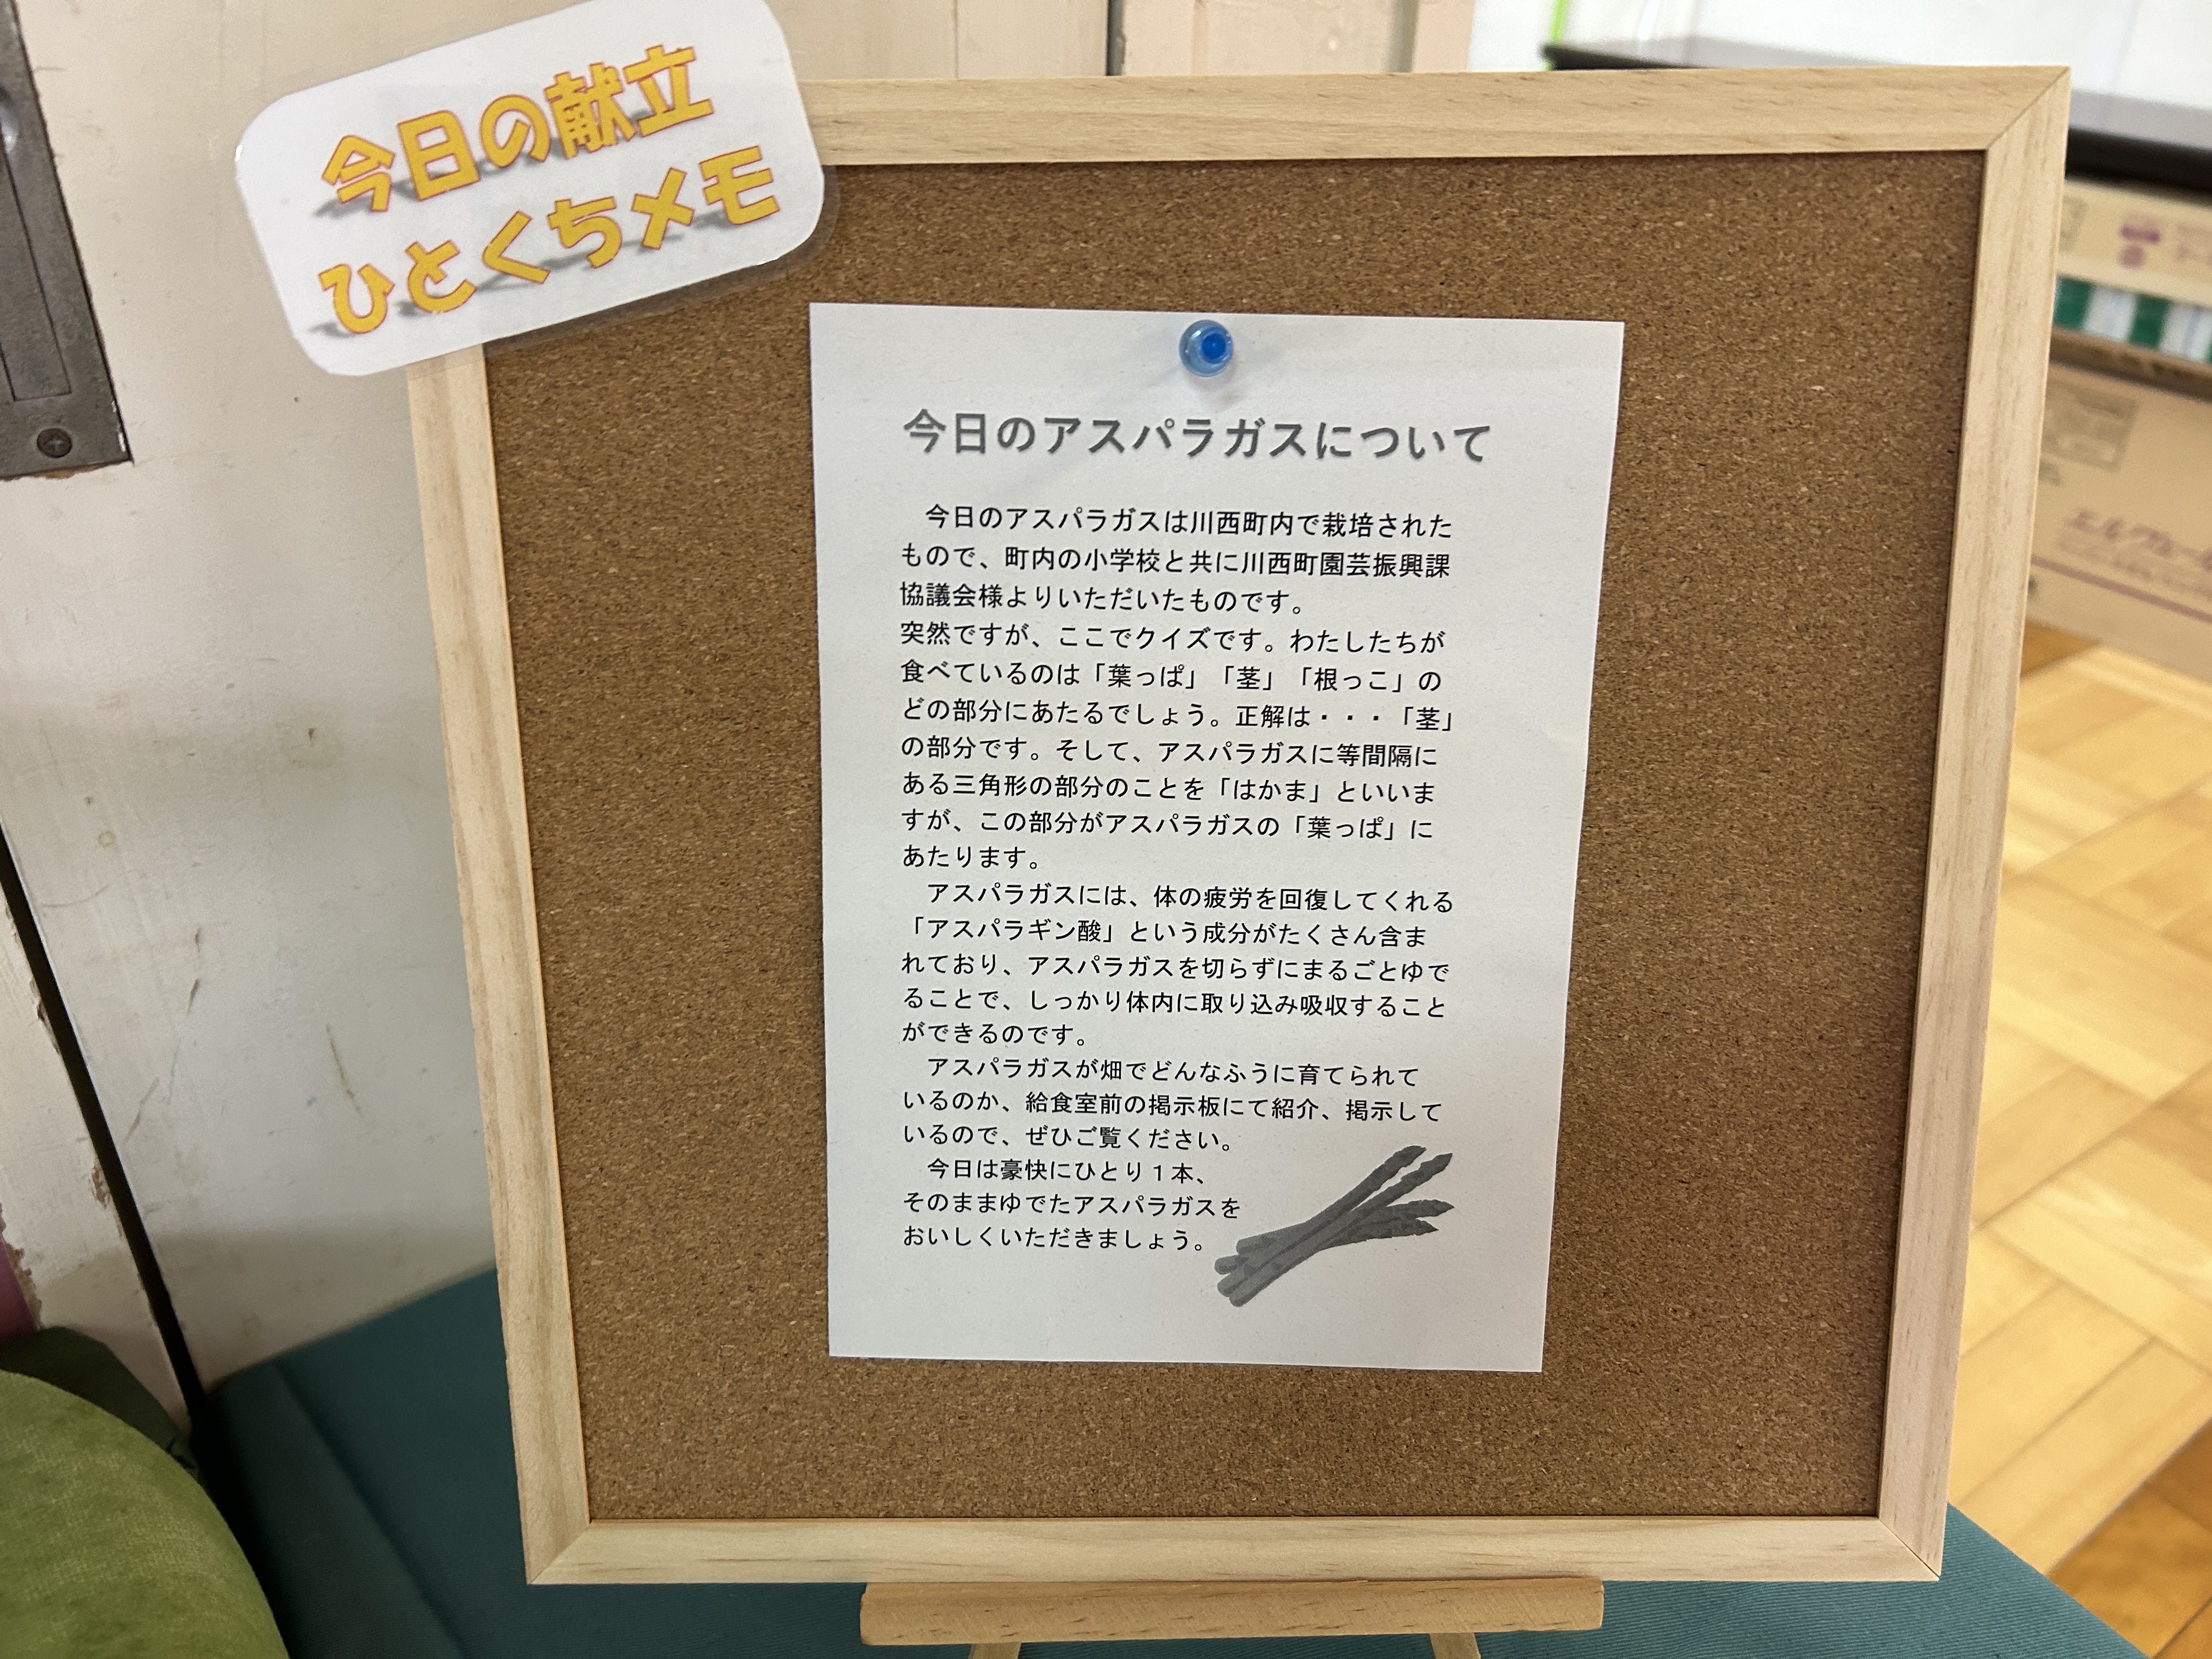 今日の献立
ひとくちメモ
今日のアスパラガスについて
今日のアスパラガスは川西町内で栽培された
もので、町内の小学校と共に川西町園芸振興課
協議会様よりいただいたものです。
突然ですが、ここでクイズです。わたしたちが
食べているのは「葉っぱ」「茎」「根っこ」の
どの部分にあたるでしょう。正解は・・・「茎」
の部分です。そして、アスパラガスに等間隔に
ある三角形の部分のことを「はかま」といいま
すが、この部分がアスパラガスの「葉っぱ」に
あたります。
アスパラガスには、体の疲労を回復してくれる
「アスパラギン酸」という成分がたくさん含ま
れており、アスパラガスを切らずにまるごとゆで
ることで、しっかり体内に取り込み吸収すること
ができるのです。
アスパラガスが畑でどんなふうに育てられて
いるのか、給食室前の掲示板にて紹介、掲示して
いるので、ぜひご覧ください。
今日は豪快にひとり１本、
そのままゆでたアスパラガスを
おいしくいただきましょう。